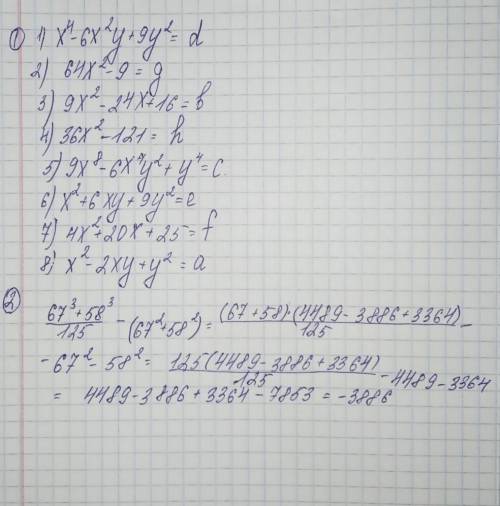 ① 1) x⁴-6x²y+9y²= d
2) 64x²-9 = g
3) 9x²-24x+16 = b
4) 36x²-121 = h
5) 9x⁸-6x⁴y²+y⁴=c.
6) x²+6xy+9y²=e
7) 4x²+20x+25=f
8) x²-2xy+y²=a
② (67³+58³)/125 - (67²+58²) = ((67+58)·(4489-3886+3364))/125 -
- 67² - 58² = (125(4489-3886+3364))/125 - 4489 - 3364
= 4489-3886+3364-7853 = -3886